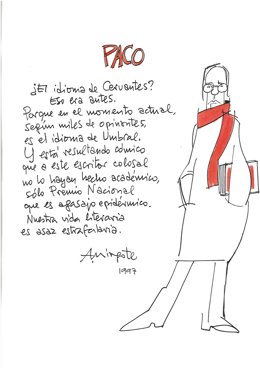 PACO
¿El idioma de Cervantes?
Eso era antes.
Porque en el momento actual,
según miles de opinantes,
es el idioma de Umbral.
Y está resultando cómico
que a este escritor colosal
no lo hayan hecho académico,
sólo Premio Nacional
que es agasajo epidérmico.
Nuestra vida literaria
es asaz estrafalaria.
1997